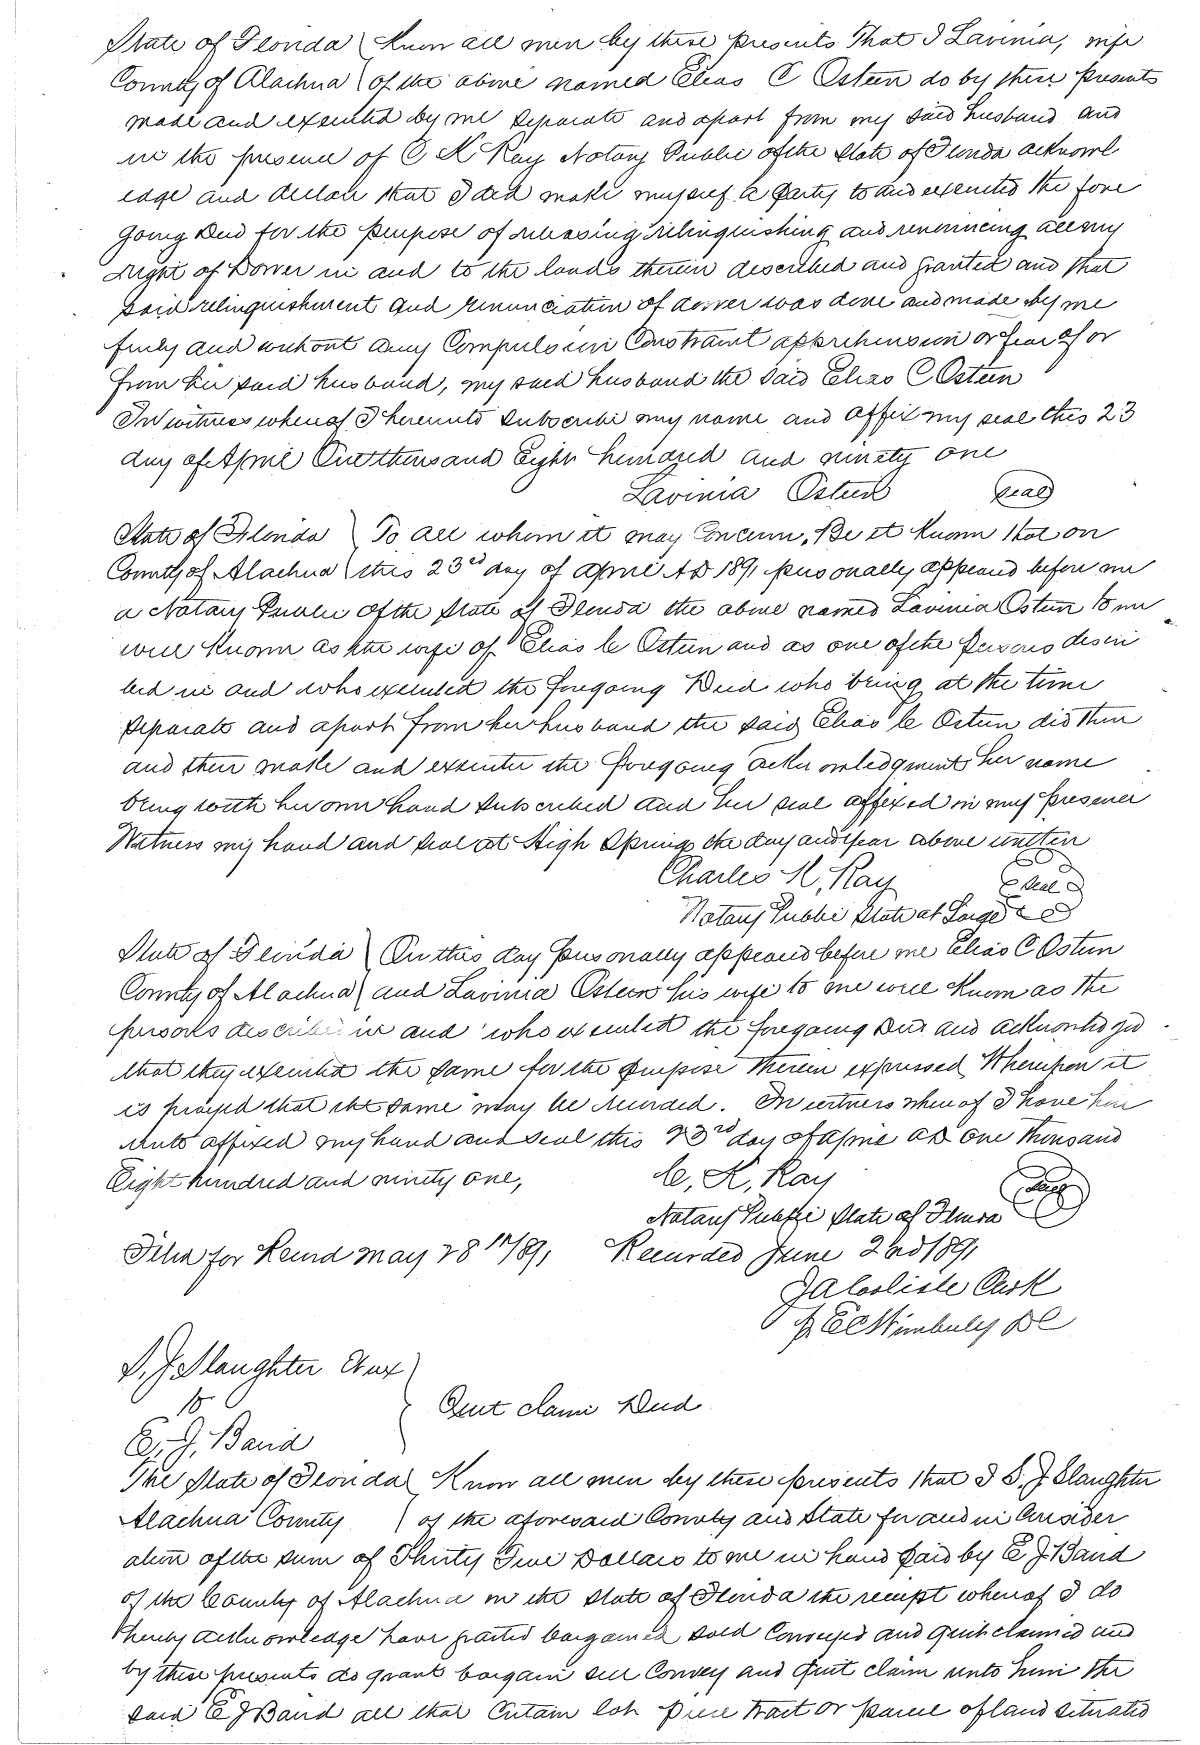 State of Florida ( Know all men by these presents That I Lavinia, wife
County of Alachua ( of the above named Elias C Osteen do by these presents
made and executed by me separate and apart from my said husband and
in the presence of C K Ray Notary Public of the State of Florida acknowl
edge and declare that I did make myself a party to and executed the fore
going Deed for the purpose of releasing relinquishing and renouncing all my
right of Dower in and to the lands therein described and granted and that
said relinquishment and renunciation of dower was done and made by me
freely and without any Compulsion Constraint apprehension or fear of or
from her said husband, my said husband the said Elias C Osteen
In witness whereof I hereunto subscribe my name and affix my seal this 23
day of April One thousand Eight hundred and ninety one
Lavinia Osteen (seal)
State of Florida ) To all whom it may Concern, Be it Known that on
County of Alachua ( this 23rd day of April AD 1891 personally appeared before me
a Notary Public of the State of Florida the above named Lavinia Osteen to me
well Known as the wife of Elias C Osteen and as one of the persons descri
bed in and who executed the foregoing Deed who being at the time
separate and apart from her husband the said Elias C Osteen did then
and there make and execute the foregoing acknowledgment her name
being with her own hand subscribed and her seal affixed in my presence
Witness my hand and seal at High Springs the day and year above written
Charles K, Ray (seal)
Notary Public State at Large
State of Florida ) On this day personally appeared before me Elias C Osteen
County of Alachua ) and Lavinia Osteen his wife to me well Known as the
persons described in and who executed the foregoing Deed and acknowledged
that they executed the same for the purpose therein expressed Whereupon it
is prayed that the same may be recorded. In witness whereof I have here
unto affixed my hand and seal this 23rd day of April AD One thousand
Eight hundred and ninety one,
C, K, Ray (seal)
Notary Public State of Florida
Filed for Record May 28th/891 Recorded June 2nd 1891
J A Carlisle Clerk
pr E C Wimberly DC
S. J Slaughter Et ux )
to
Quit claim Deed
E, J, Baird
The State of Florida ( Know all men by these presents that I S. J Slaughter
Alachua County ) of the aforesaid County and State for and in Consider
ation of the sum of Thirty Five Dollars to me in hand paid by E J Baird
of the County of Alachua in the State of Florida the receipt whereof I do
hereby acknowledge have granted bargained sold Conveyed and quit claimed and
by these presents do grant bargain sell Convey and Quit claim unto him the
said E J Baird all that Certain lot piece tract or parcel of land situated